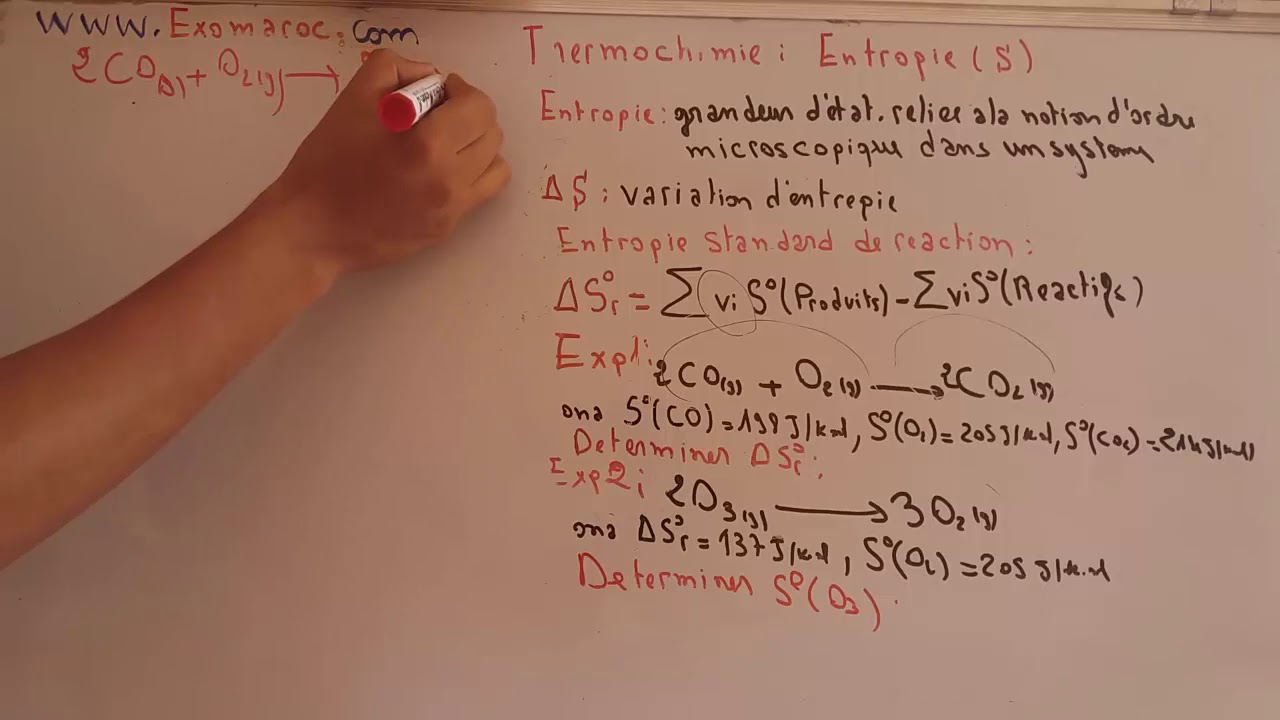 WWW.Exomaroc.com
2CO(g) + O2(g) →
Thermochimie : Entropie (S)
Entropie : grandeur d'état. relier a la notion d'ordre
microscopique dans un system
ΔS : variation d'entropie
Entropie standard de reaction :
ΔS°r = Σ vi S°(Produits) - Σ vi S°(Reactifs)
Expl1: 2CO(g) + O2(g) → 2CO2(g)
ona S°(CO) = 198 J/k.mol, S°(O2) = 205 J/k.mol, S°(CO2) = 214 J/k.mol
Determiner ΔS°r ;
Exp2 ; 2O3(g) → 3O2(g)
ona ΔS°r = 137 J/k.mol, S°(O2) = 205 J/k.mol
Determiner S°(O3).